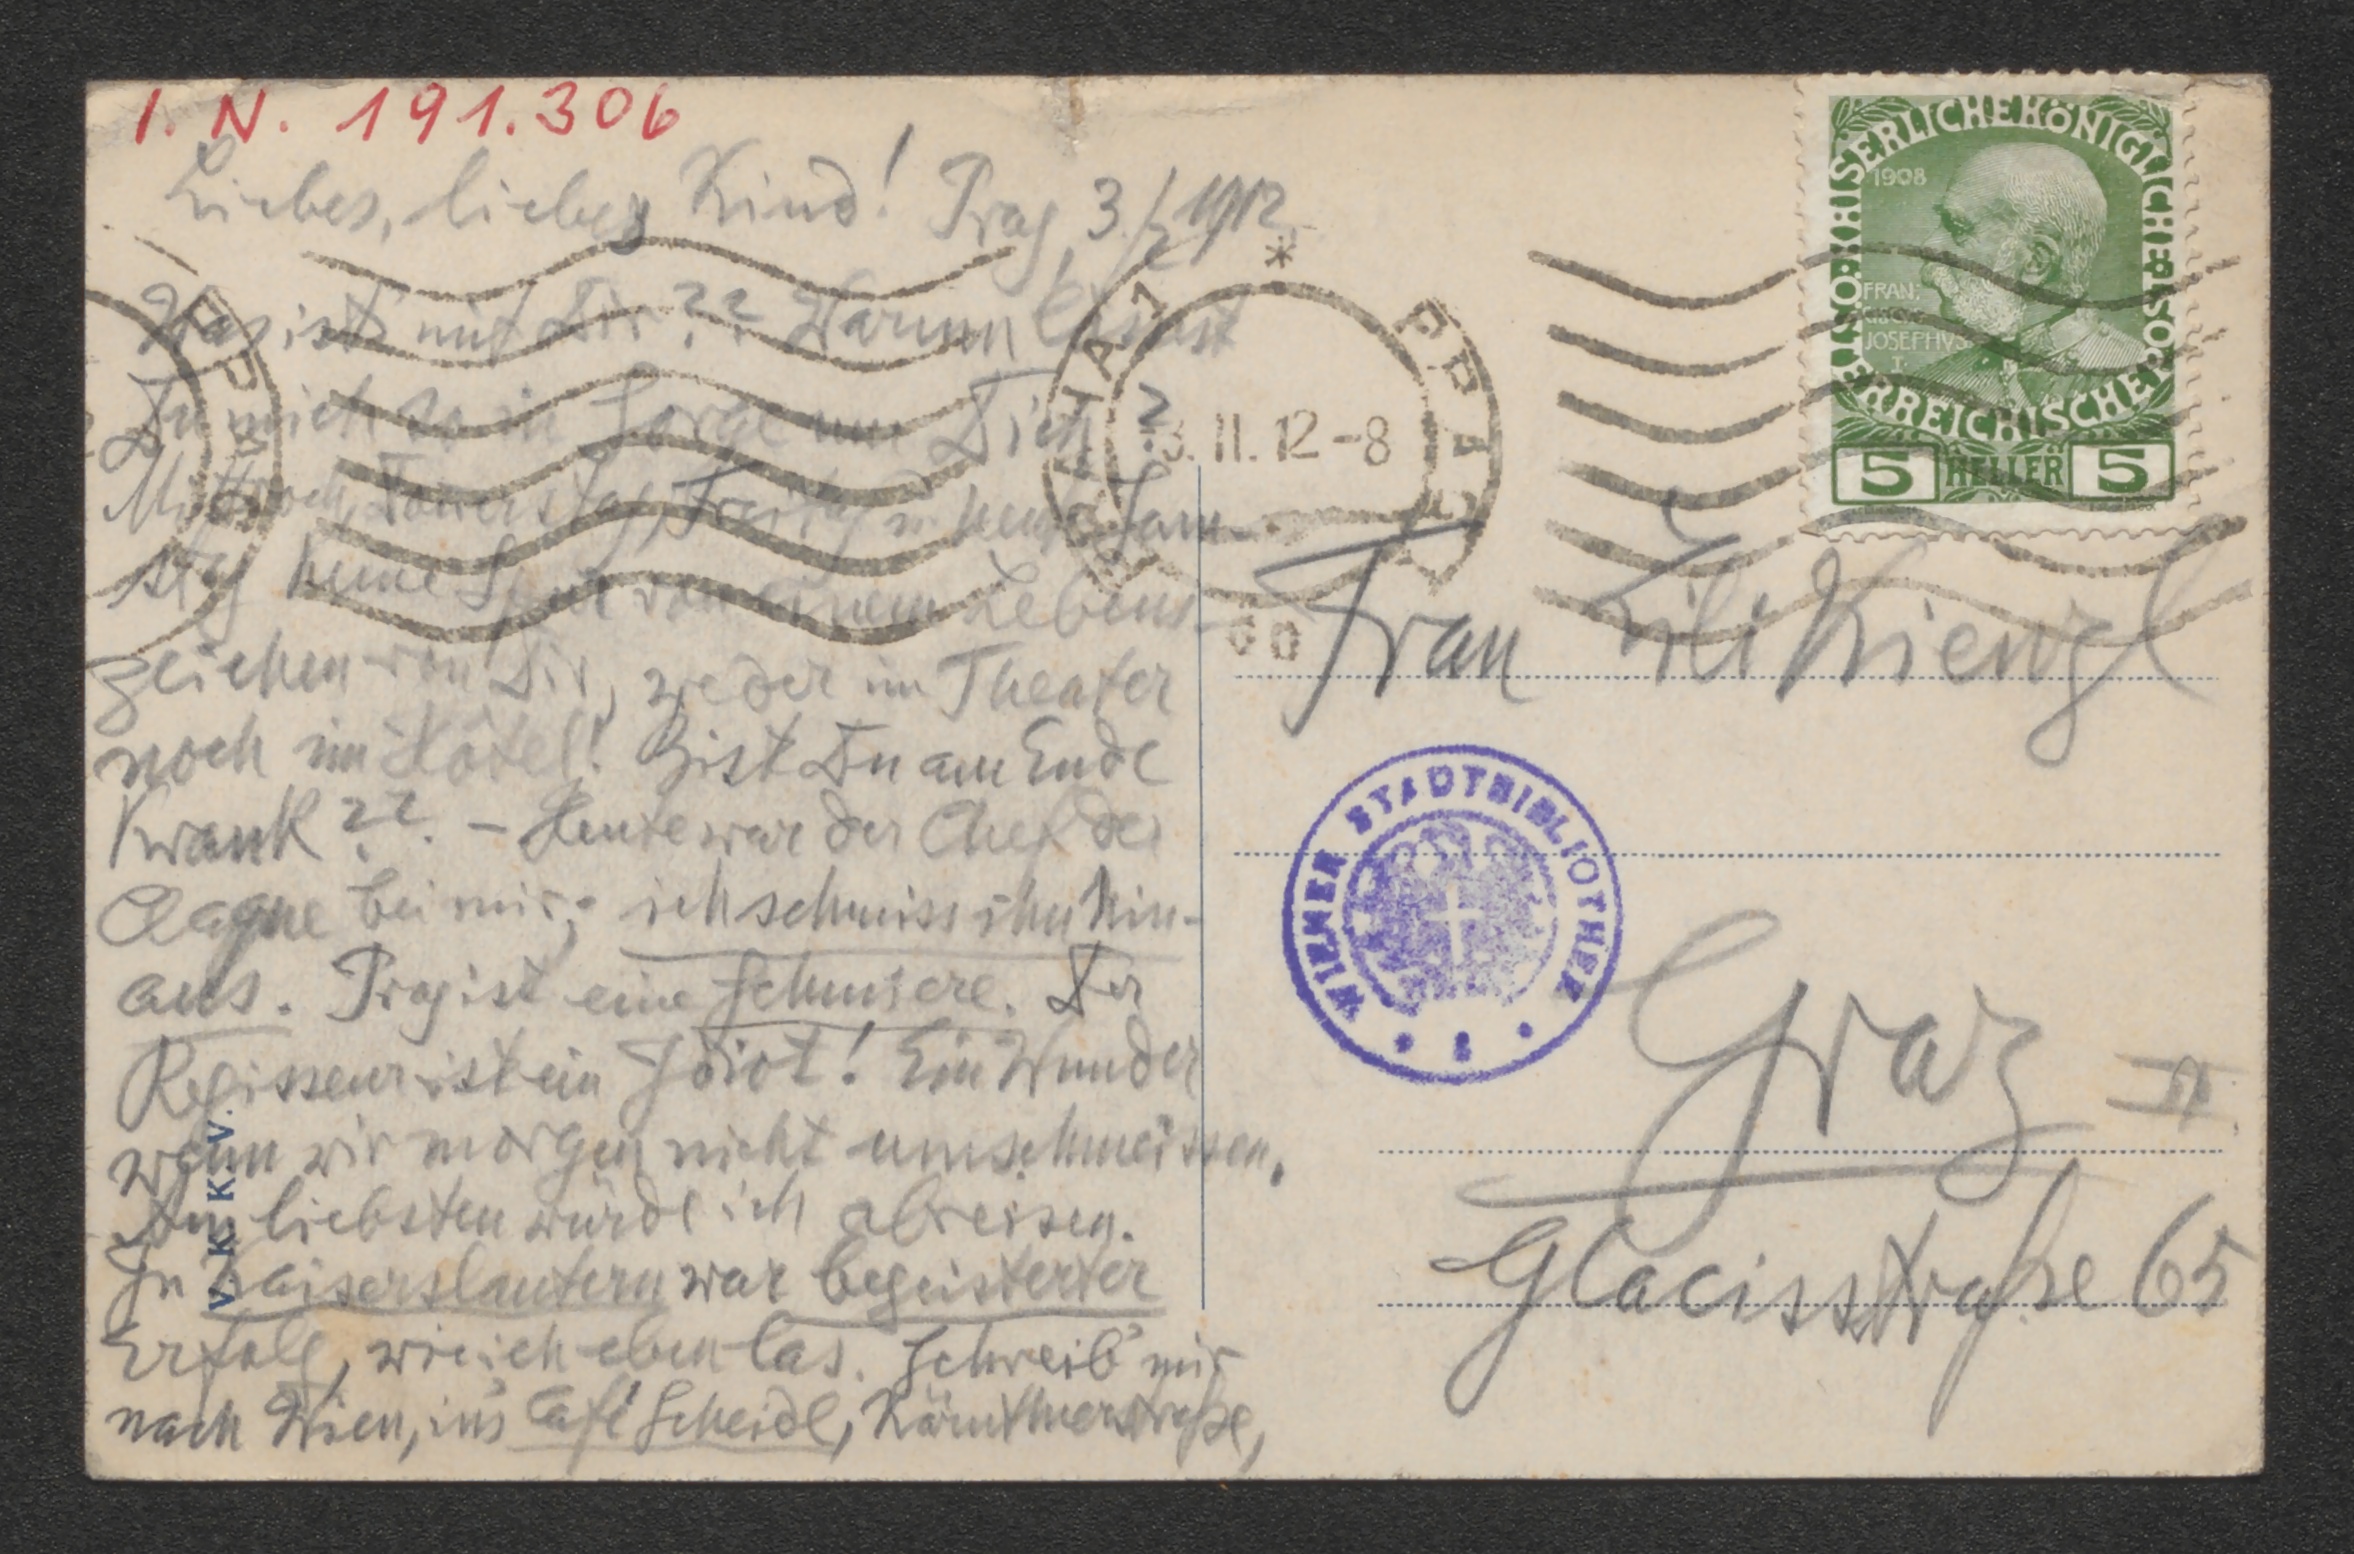 I. N. 191.306
Liebes, liebes Kind! Prag, 3./2 1912
Was ist's mit Dir?? Warum lässest
Du mich so in Sorge um Dich?
Mittwoch, Donnerstag, Freitag u. heute Sam-
stag keine Spur von einem Lebens-
zeichen von Dir, weder im Theater
noch im Hôtel! Bist Du am Ende
krank??. – Heute war der Chef der
Claque bei mir; ich schmiss ihn hin-
aus. Prag ist eine Schmiere. Der
Regisseur ist ein Idiot! Ein Wunder
wenn wir morgen nicht umschmeissen.
Am liebsten würde ich abreisen.
In Kaiserslautern war begeisterter
Erfolg, wie ich eben las. Schreib' mir
nach Wien, in's Café Scheidl, Kärnthnerstraße,
V.K.K.V.
PRAHA 1
PRAG 1
3.II.12-8
KAISERLICHE KÖNIGLICHE ÖSTERREICHISCHE POST
1908
FRANZ
JOSEPHVS
I.
5 HELLER 5
Frau Lili Kienzl
WIENER STADTBIBLIOTHEK
Graz
Glacisstraße 65